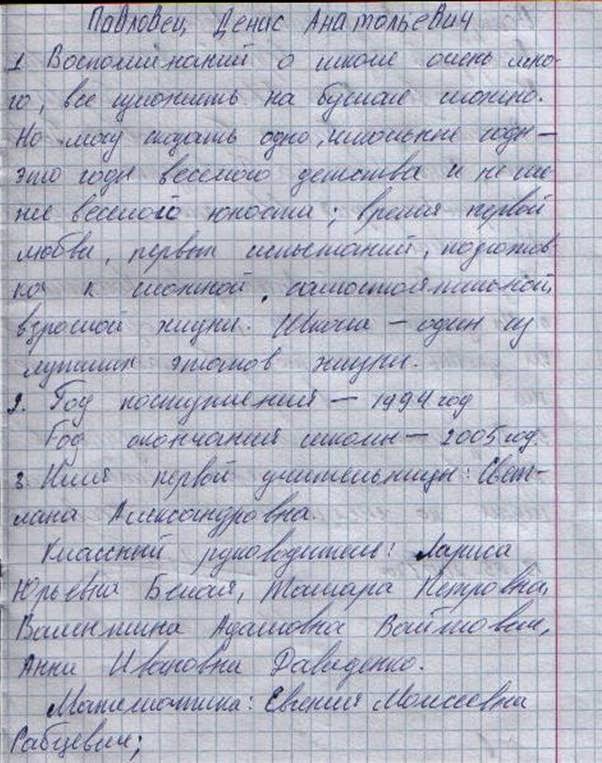 Павловец Денис Анатольевич
1. Воспоминаний о школе очень мно-
го, все изложить на бумаге сложно.
Но могу сказать одно, школьные годы —
это годы веселого детства и не ме
нее веселой юности; время первой
любви, первых испытаний, подготов
ка к сложной, самостоятельной,
взрослой жизни. Школа — один из
лучших этапов жизни.
2. Год поступления — 1994 год
Год окончания школы — 2005 год
3. Имя первой учительницы: Свет-
лана Александровна.
Классный руководитель: Лариса
Юрьевна Белая, Тамара Петровна,
Валентина Адамовна Войтович,
Анна Ивановна Давиденко.
Математика: Евгения Моисеевна
Рабцевич;